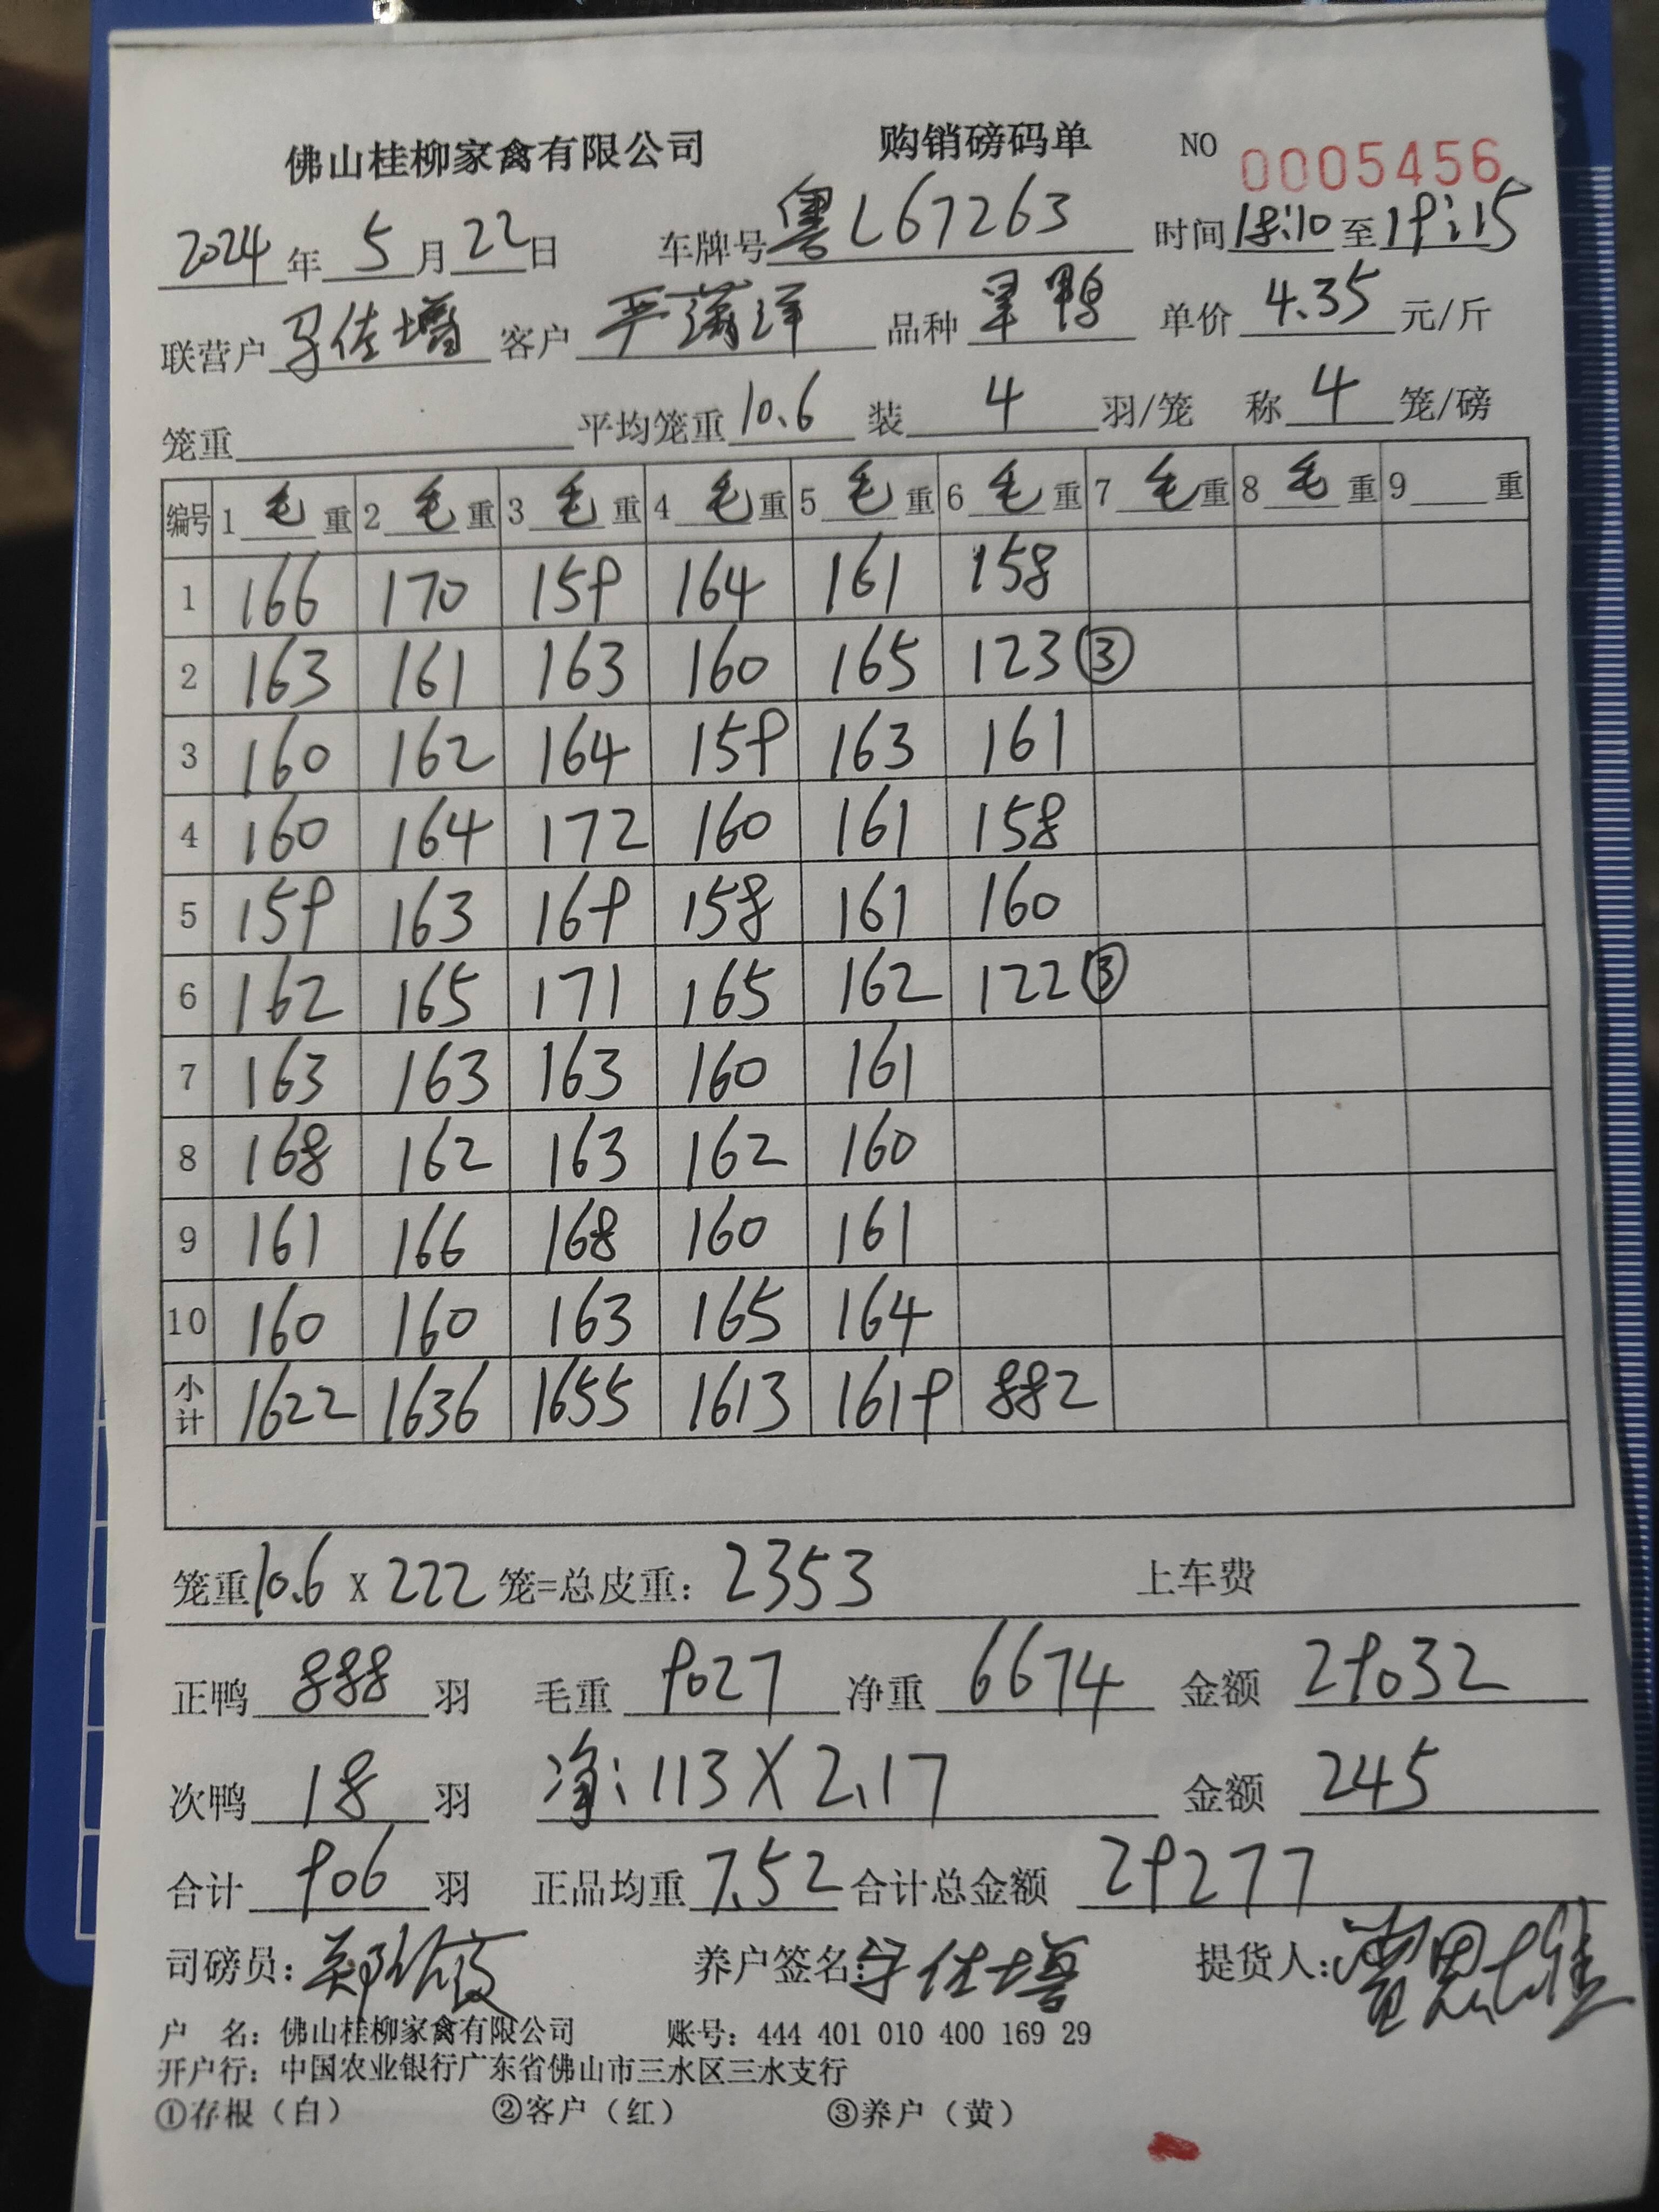 佛山桂柳家禽有限公司 购销磅码单 NO 0005456
2024年5月22日 车牌号粤L67263 时间18:10至19:15
联营户 佐增 客户 严潇洋 品种 鸭 单价 4.35 元/斤
笼重 平均笼重10.6 装 4 羽/笼 称 4 笼/磅
编号 1 毛 重 2 毛 重 3 毛 重 4 毛 重 5 毛 重 6 毛 重 7 毛 重 8 毛 重 9 重
1 166 170 159 164 161 158
2 163 161 163 160 165 123 ③
3 160 162 164 159 163 161
4 160 164 172 160 161 158
5 159 163 169 158 161 160
6 162 165 171 165 162 122 ③
7 163 163 163 160 161
8 168 162 163 162 160
9 161 166 168 160 161
10 160 160 163 165 164
小计 1622 1636 1655 1613 1619 882
笼重10.6 X 222 笼=总皮重: 2353 上车费
正鸭 888 羽 毛重 9027 净重 6674 金额 29032
次鸭 18 羽 净:113X2.17 金额 245
合计 906 羽 正品均重 7.52 合计总金额 29277
司磅员: 养户签名: 佐增 提货人:
户 名: 佛山桂柳家禽有限公司 账号: 444 401 010 400 169 29
开户行: 中国农业银行广东省佛山市三水区三水支行
①存根（白） ②客户（红） ③养户（黄）